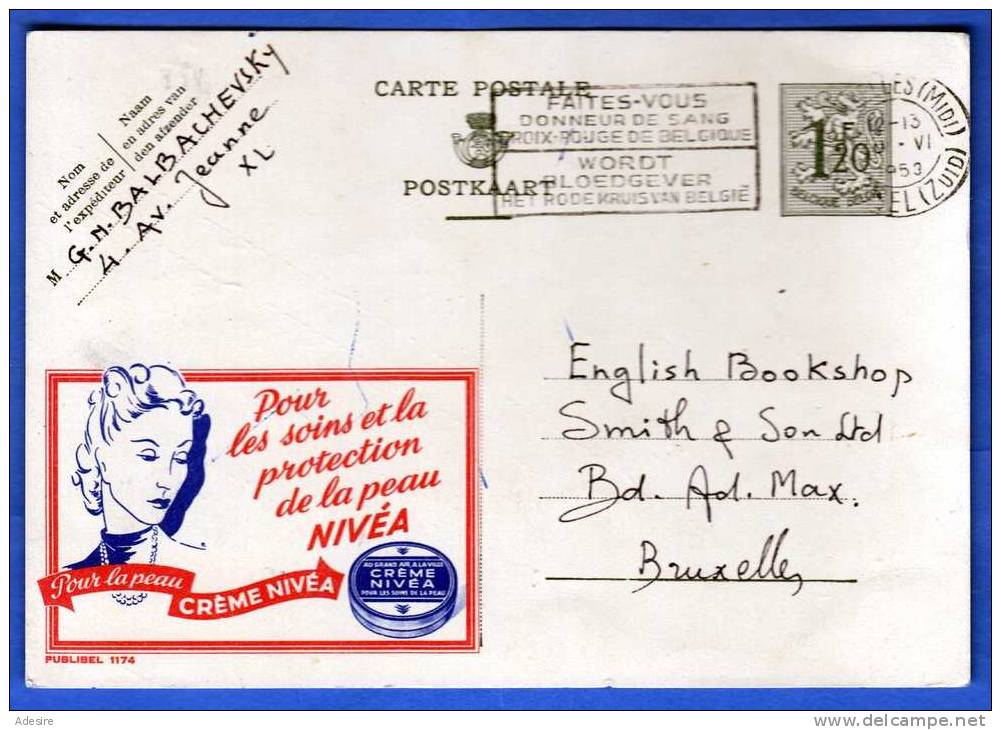 Nom
et adresse de
l'expéditeur
Naam
en adres van
den afzender
M G. N. BALBACHEVSKY
4. Av. Jeanne
XL
CARTE POSTALE
POSTKAART
FAITES-VOUS
DONNEUR DE SANG
CROIX-ROUGE DE BELGIQUE
WORDT
BLOEDGEVER
HET RODE KRUIS VAN BELGIË
1F20
BELGIQUE BELGIË
LES (MIDI)
13
VI
1953
EL (ZUID)
Pour
les soins et la
protection
de la peau
NIVÉA
Pour la peau
CRÈME NIVÉA
AU GRAND AIR, A LA VILLE
CRÈME
NIVÉA
POUR LES SOINS DE LA PEAU
PUBLIBEL 1174
English Bookshop
Smith & Son Ltd
Bd. Ad. Max.
Bruxelles
Adesire
www.delcampe.net